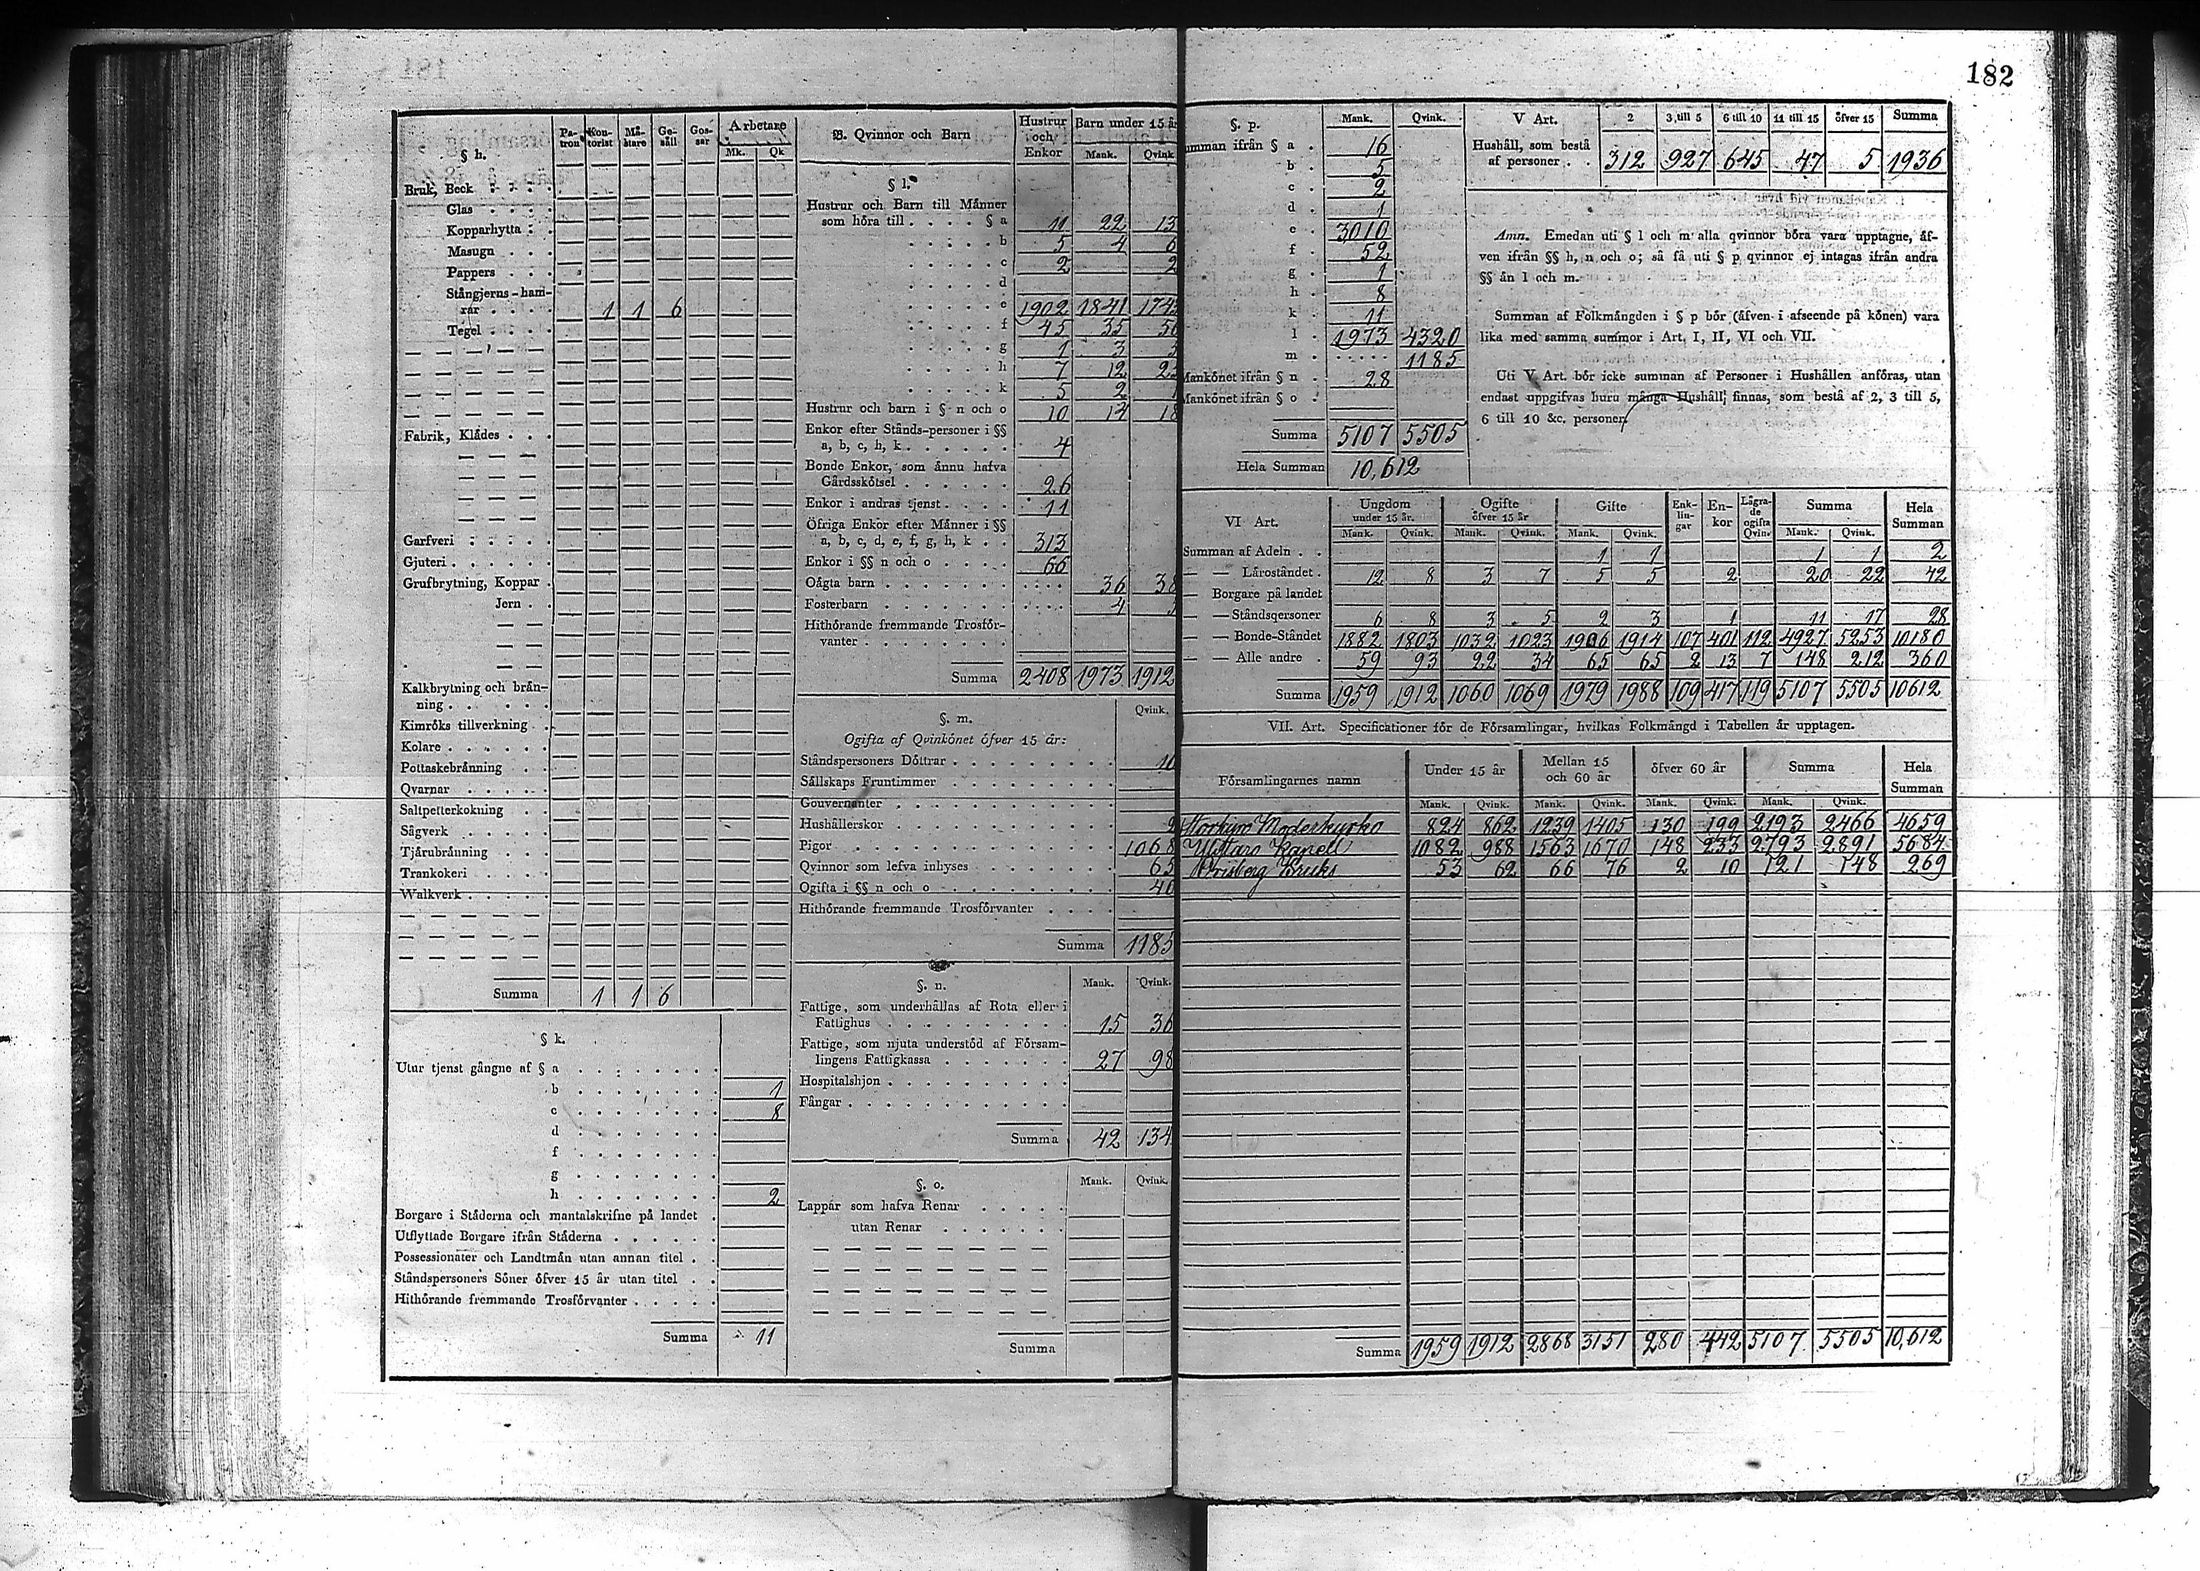 182
§ h.
Pa-tron Kon-torist Må-stare Ge-säll Gos-sar Arbetare
Mk. Qk
Bruk, Beck
Glas
Kopparhytta
Masugn
Pappers
Stångjerns-ham-
rar 1 1 6
Tegel
Fabrik, Klådes
Garfveri
Gjuteri
Grufbrytning, Koppar
Jern
Kalkbrytning och brån-
ning
Kimröks tillverkning
Kolare
Pottaskebrånning
Qvarnar
Saltpetterkokning
Sågverk
Tjårubrånning
Trankokeri
Walkverk
Summa 1 1 6
§ k.
Utur tjenst gångne af § a
b 1
c 8
d
f
g
h 2
Borgare i Ståderna och mantalskrifne på landet
Utflyttade Borgare ifrån Ståderna
Possessionater och Landtmån utan annan titel
Ståndspersoners Söner öfver 15 år utan titel
Hithörande fremmande Trosförvanter
Summa 11
B. Qvinnor och Barn
Hustrur och Enkor Barn under 15 år
Mank. Qvink
§ l.
Hustrur och Barn till Månner
som höra till § a 11 22 13
b 5 4 6
c 2 2
d
e 1902 1841 174
f 45 35 5
g 1 3
h 7 12 2
k 5 2
Hustrur och barn i § n och o 10 14 18
Enkor efter Stånds-personer i §§
a, b, c, h, k 4
Bonde Enkor, som ånnu hafva
Gårdsskötsel 26
Enkor i andras tjenst 11
Öfriga Enkor efter Månner i §§
a, b, c, d, e, f, g, h, k 313
Enkor i §§ n och o 66
Oågta barn 36 38
Fosterbarn 4
Hithörande fremmande Trosför-
vanter
Summa 2408 1973 1912
§. m. Qvink.
Ogifta af Qvinkönet öfver 15 år:
Ståndspersoners Döttrar 10
Sållskaps Fruntimmer
Gouvernanter
Hushållerskor 2
Pigor 1068
Qvinnor som lefva inhyses 65
Ogifta i §§ n och o 40
Hithörande fremmande Trosförvanter
Summa 1185
§. n. Mank. Qvink.
Fattige, som underhållas af Rota eller i
Fattighus 15 36
Fattige, som njuta understöd af Försam-
lingens Fattigkassa 27 98
Hospitalshjon
Fångar
Summa 42 134
§. o. Mank. Qvink.
Lappar som hafva Renar
utan Renar
Summa
§. p. Mank. Qvink.
umman ifrån § a 16
b 5
c 2
d 1
e 3010
f 52
g 1
h 8
k 11
l 1973 4320
m 1185
Mankönet ifrån § n 28
Mankönet ifrån § o
Summa 5107 5505
Hela Summan 10,612
V Art. 2 3 till 5 6 till 10 11 till 15 öfver 15 Summa
Hushåll, som bestå
af personer 312 927 645 47 5 1936
Anm. Emedan uti § l och m alla qvinnor böra vara upptagne, åf-
ven ifrån §§ h, n och o; så få uti § p qvinnor ej intagas ifrån andra
§§ ån l och m.
Summan af Folkmångden i § p bör (åfven i afseende på könen) vara
lika med samma summor i Art. I, II, VI och VII.
Uti V Art. bör icke summan af Personer i Hushållen anföras, utan
endast uppgifvas huru många Hushåll finnas, som bestå af 2, 3 till 5,
6 till 10 &c. personer.
VI Art. Ungdom under 15 år. Ogifte öfver 15 år Gifte Enk-lin-gar En-kor Lågra-de ogifta Qvin. Summa Hela Summan
Mank. Qvink. Mank. Qvink. Mank. Qvink. Mank. Qvink.
Summan af Adeln 1 1 1 1 2
— — Låroståndet 12 8 3 7 5 5 2 20 22 42
— Borgare på landet
— — Ståndspersoner 6 8 3 5 2 3 1 11 17 28
— — Bonde-Ståndet 1882 1803 1032 1023 1906 1914 107 401 112 4927 5253 10180
— — Alle andre 59 93 22 34 65 65 2 13 7 148 212 360
Summa 1959 1912 1060 1069 1979 1988 109 417 119 5107 5505 10612
VII. Art. Specificationer för de Församlingar, hvilkas Folkmångd i Tabellen år upptagen.
Församlingarnes namn Under 15 år Mellan 15 och 60 år öfver 60 år Summa Hela Summan
Mank. Qvink. Mank. Qvink. Mank. Qvink. Mank. Qvink.
Moderkyrko 824 862 1239 1405 130 199 2193 2466 4659
Kapell 1082 988 1563 1670 148 233 2793 2891 5684
Bruks 53 62 66 76 2 10 121 148 269
Summa 1959 1912 2868 3151 280 442 5107 5505 10,612